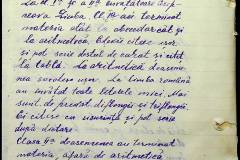 La cl. I-a și a II-a învățătoare Dep-
reova Limba. Cl. I-a au terminat
materia atât la abecedar cât și
la aritmetică. Elevii citesc ușor
și pot scrie destul de calat și citit
la tablă. La aritmetică deasemе-
nea socotesc ușor. La limba română
au învățat toate literele mici. Mai
sunt de predat diftongii și triftongii.
Ei citesc cu ușurință și pot scrie
după dictare.
Clasa II-a deasemenea au terminat
materia, afară de aritmetică